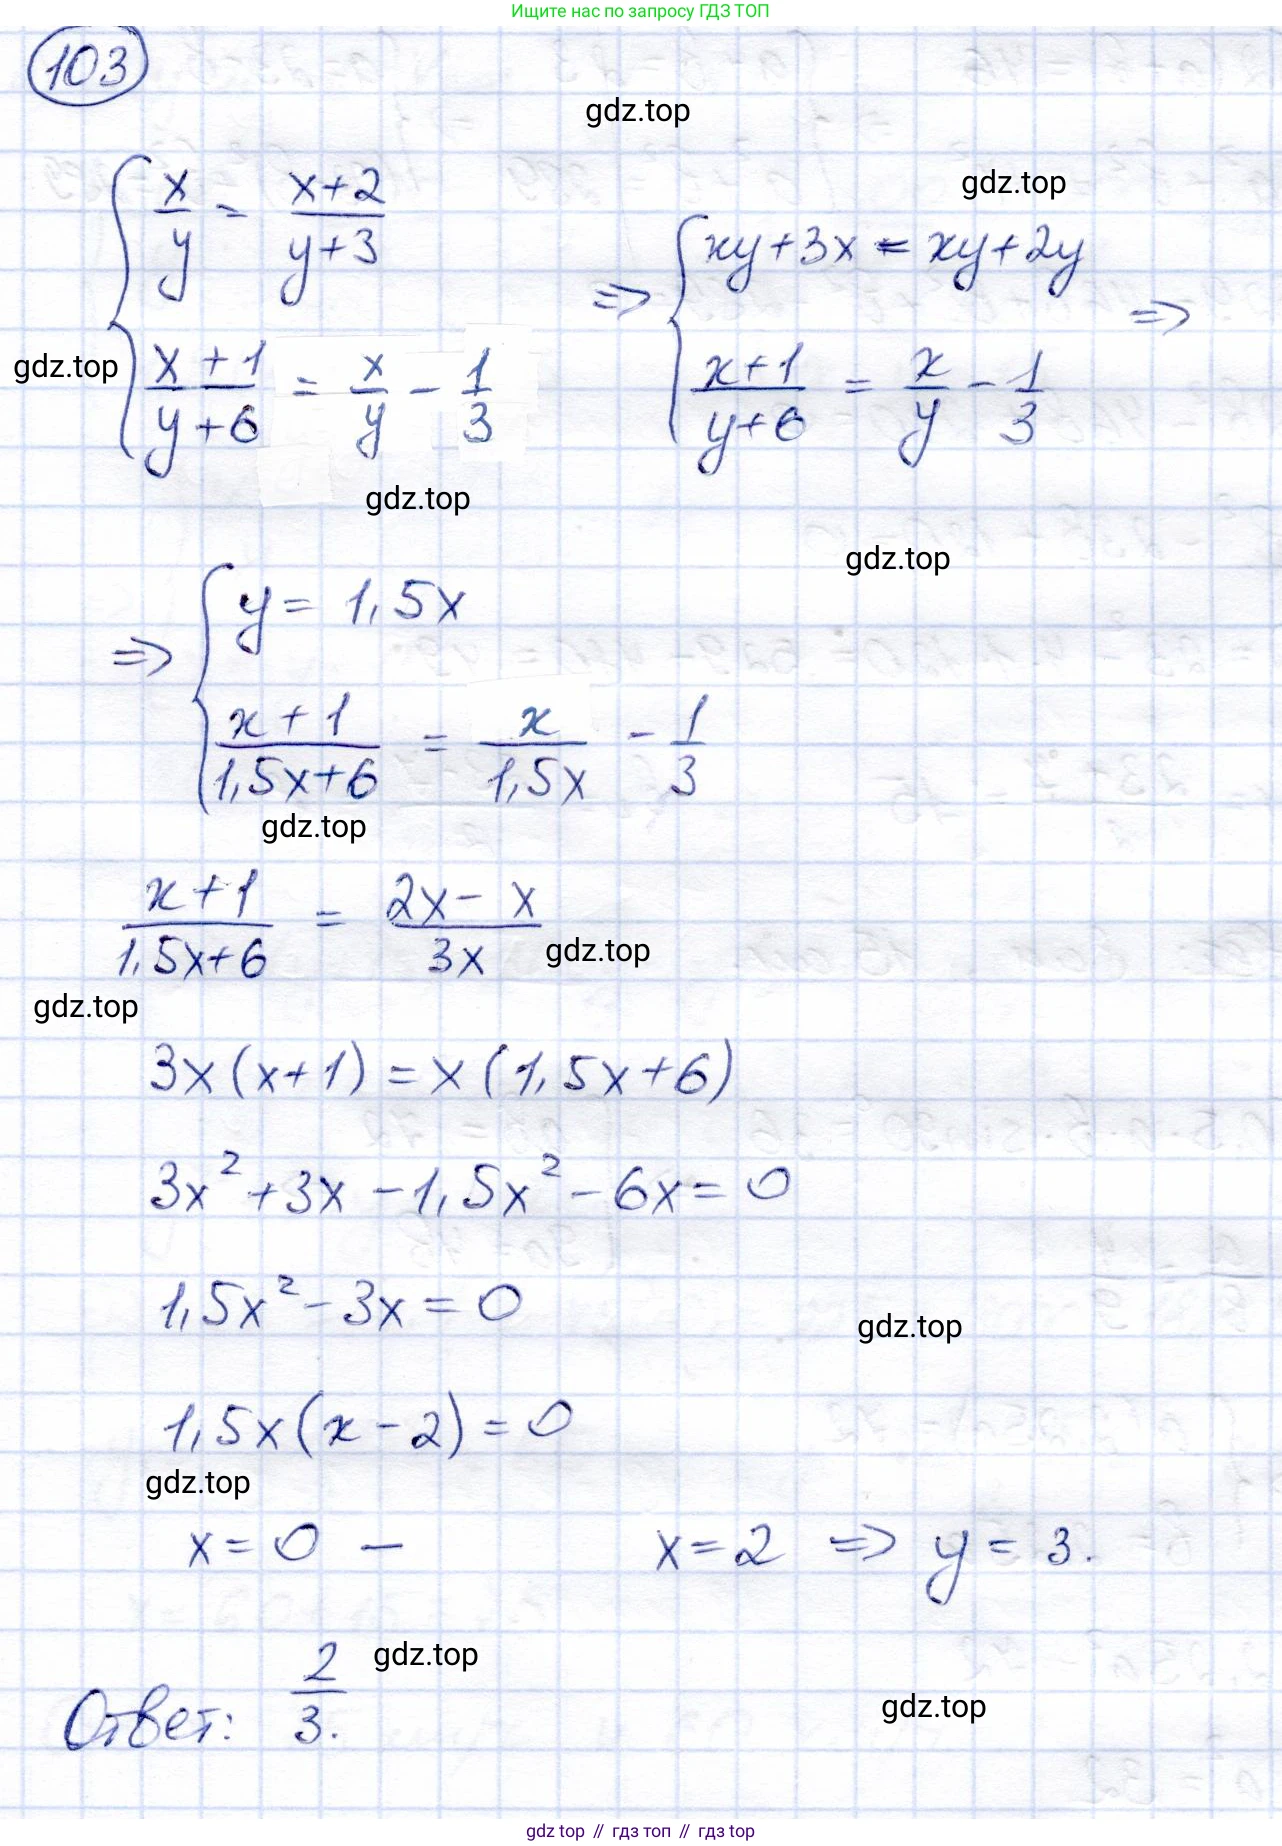 Ищите нас по запросу ГДЗ ТОП
103
gdz.top
gdz.top
{ x/y = (x+2)/(y+3) ⇒ { xy+3x = xy+2y ⇒
gdz.top
{ (x+1)/(y+6) = x/y - 1/3 { (x+1)/(y+6) = x/y - 1/3
gdz.top
gdz.top
⇒ { y = 1,5x
{ (x+1)/(1,5x+6) = x/(1,5x) - 1/3
gdz.top
(x+1)/(1,5x+6) = (2x-x)/(3x)
gdz.top
gdz.top
3x(x+1) = x(1,5x+6)
3x² + 3x - 1,5x² - 6x = 0
1,5x² - 3x = 0
gdz.top
1,5x(x-2) = 0
gdz.top
x = 0 — x = 2 ⇒ y = 3.
gdz.top
Ответ: 2/3.
gdz.top
gdz top // гдз топ // гдз top